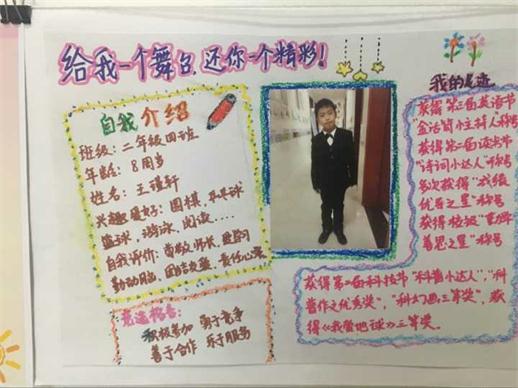 给我一个舞台,还你一个精彩!
自我介绍
班级:二年级四班
年龄:8周岁
姓名:王瑾轩
兴趣爱好:围棋,乒乓球
篮球,游泳,阅读....
自我评价:尊敬师长,爱学习
勤动脑,团结友爱,责任心强
竞选格言:
积极参加 勇于竞争
善于合作 乐于服务
我的足迹
获得第二届英语节
"金话筒小主持人"称号
获得第二届读书节
"诗词小达人"称号
多次获得"成绩
优异之星"称号
获得校级"勤学
善思之星"称号
获得第二届科技节"科普小达人","科
普作文优秀奖","科幻画三等奖",获
得《我爱地球》三等奖。